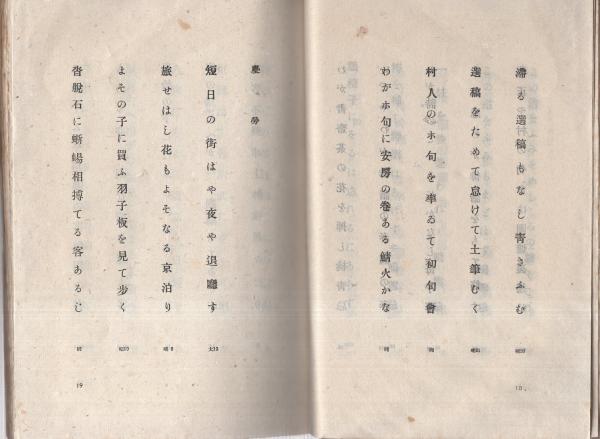 滞る選稿もなし青きふむ
選稿をためて怠けて土筆むく
村人のホ句を率ゐて初句會
わがホ句に安房の巻ある鯖火かな
18
慶勞
短日の街はや夜や退廳す
旅せはし花もよそなる京泊り
よその子に買ふ羽子板を見て歩く
沓脱石に蜥蜴相搏てる客あるじ
19